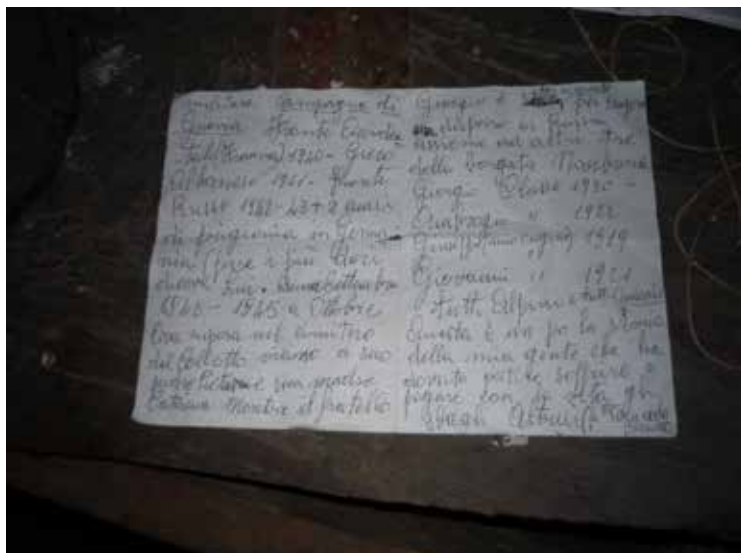 militare Campagne di
Guerra Fronte Occiden
tale (Francia) 1940 - Greco
Albanese 1941 - Fronte
Russo 1942-43 + 2 anni
di prigionia in Germa
nia (forse i più duri
ancora
1943 - 1945 a Ottobre
Ora riposa nel cimitero
del Colletto vicino a suo
padre e sua madre
Caterina Mentre il fratello
Giorgio è per sempre
disperso in Russia
assieme ad altri tre
della borgata
Giorgio Classe 1920 -
" 1922
Giuseppe (mio cugino) 1919
Giovanni " 1921
tutti Alpini e tutti
Questa è un po la storia
della mia gente che ha
dovuto patire soffrire e
pagare con la vita gli
sbagli Altrui